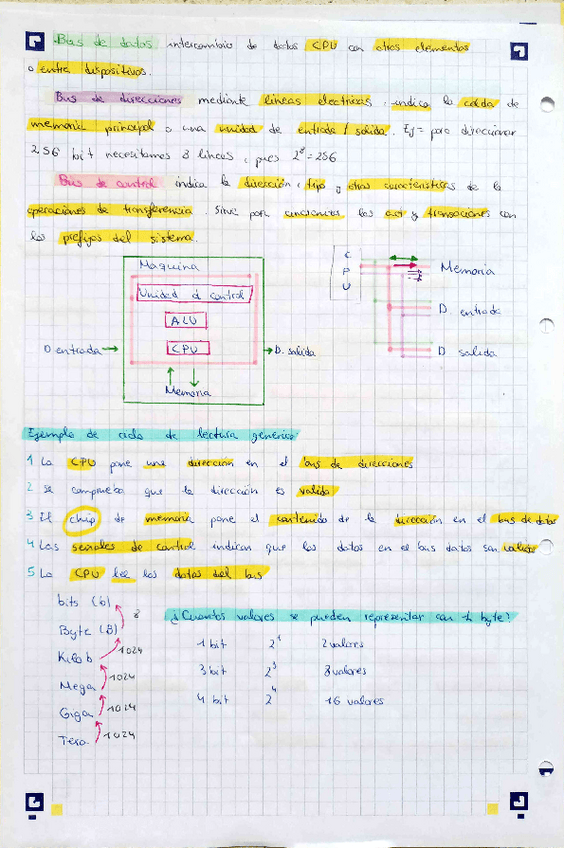 Bus de datos intercambio de datos CPU con otros elementos
o entre dispositivos.
Bus de direcciones mediante lineas electricas, indica la celda de
memoria principal o una unidad de entrada / salida. Ej= para direccionar
256 bit necesitamos 8 lineas, pues 2⁸=256
Bus de control indica la dirección, tipo y otras caracteristicas de la
operaciones de transferencia. Sirve para sincronizar las act y transaciones con
los prefijos del sistema.
Maquina
Unidad d control
ALU
CPU
D entrada
D. salida
Memoria
C
P
U
Memoria
D entrada
D salida
Ejemplo de ciclo de lectura generico
1 La CPU pone una dirección en el bus de direcciones
2 se comprueba que la dirección es valida
3 El chip de memoria pone el contenido de la dirección en el bus de datos
4 Las señales de control indican que los datos en el bus datos son validos
5 La CPU lee los datos del bus
bits (b)
8
Byte (B)
Kilo b
1024
Mega
1024
Giga
1024
Tera
1024
¿Cuantos valores se pueden representar con 1 byte?
1 bit 2¹ 2 valores
3 bit 2³ 8 valores
4 bit 2⁴ 16 valores